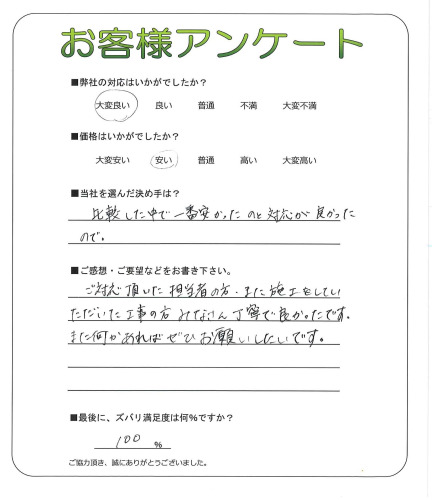 お客様アンケート
■弊社の対応はいかがでしたか?
大変良い 良い 普通 不満 大変不満
■価格はいかがでしたか?
大変安い 安い 普通 高い 大変高い
■当社を選んだ決め手は?
比較した中で一番安かったのと対応が良かった
ので。
■ご感想・ご要望などをお書き下さい。
ご対応頂いた担当者の方、また施工をしてい
ただいた工事の方みなさん丁寧で良かったです。
また何かあればぜひお願いしたいです。
■最後に、ズバリ満足度は何%ですか?
100 %
ご協力頂き、誠にありがとうございました。